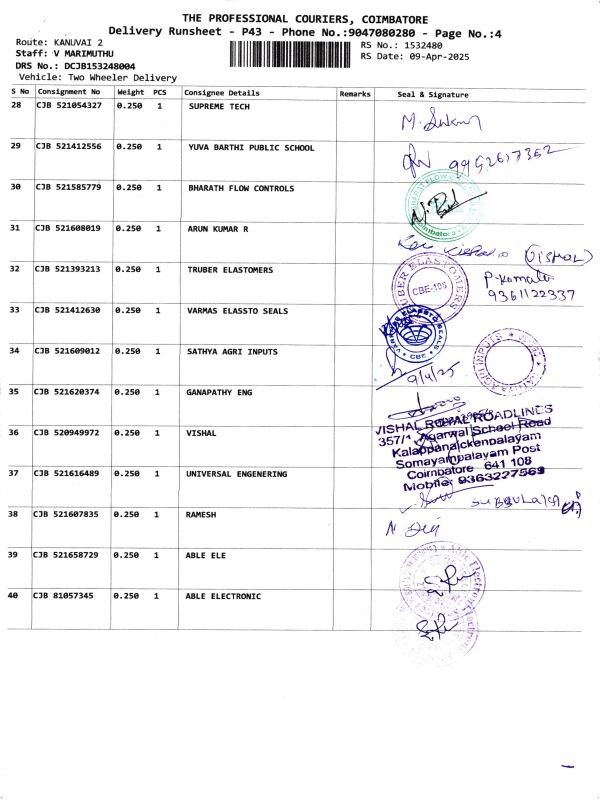 THE PROFESSIONAL COURIERS, COIMBATORE
Delivery Runsheet - P43 - Phone No.:9047080280 - Page No.:4
Route: KANUVAI 2
RS No.: 1532480
Staff: V MARIMUTHU
RS Date: 09-Apr-2025
DRS No.: DCJB153248004
Vehicle: Two Wheeler Delivery
S No Consignment No Weight PCS Consignee Details Remarks Seal & Signature
28 CJB 521054327 0.250 1 SUPREME TECH
29 CJB 521412556 0.250 1 YUVA BARTHI PUBLIC SCHOOL
30 CJB 521585779 0.250 1 BHARATH FLOW CONTROLS
31 CJB 521608019 0.250 1 ARUN KUMAR R (VISHAL)
32 CJB 521393213 0.250 1 TRUBER ELASTOMERS CBE-109 P-Komala
9361122337
33 CJB 521412630 0.250 1 VARMAS ELASSTO SEALS
VARMAS ELASSTO SEALS CBE
34 CJB 521609012 0.250 1 SATHYA AGRI INPUTS
9/4/25
35 CJB 521620374 0.250 1 GANAPATHY ENG
36 CJB 520949972 0.250 1 VISHAL
VISHAL ROYAL ROADLINES
357/1 Agarwal School Road
Kalappanaickenpalayam
Somayampalayam Post
Coimbatore 641 108
Mobile: 9363227569
37 CJB 521616489 0.250 1 UNIVERSAL ENGENERING
38 CJB 521607835 0.250 1 RAMESH
39 CJB 521658729 0.250 1 ABLE ELE
40 CJB 81057345 0.250 1 ABLE ELECTRONIC